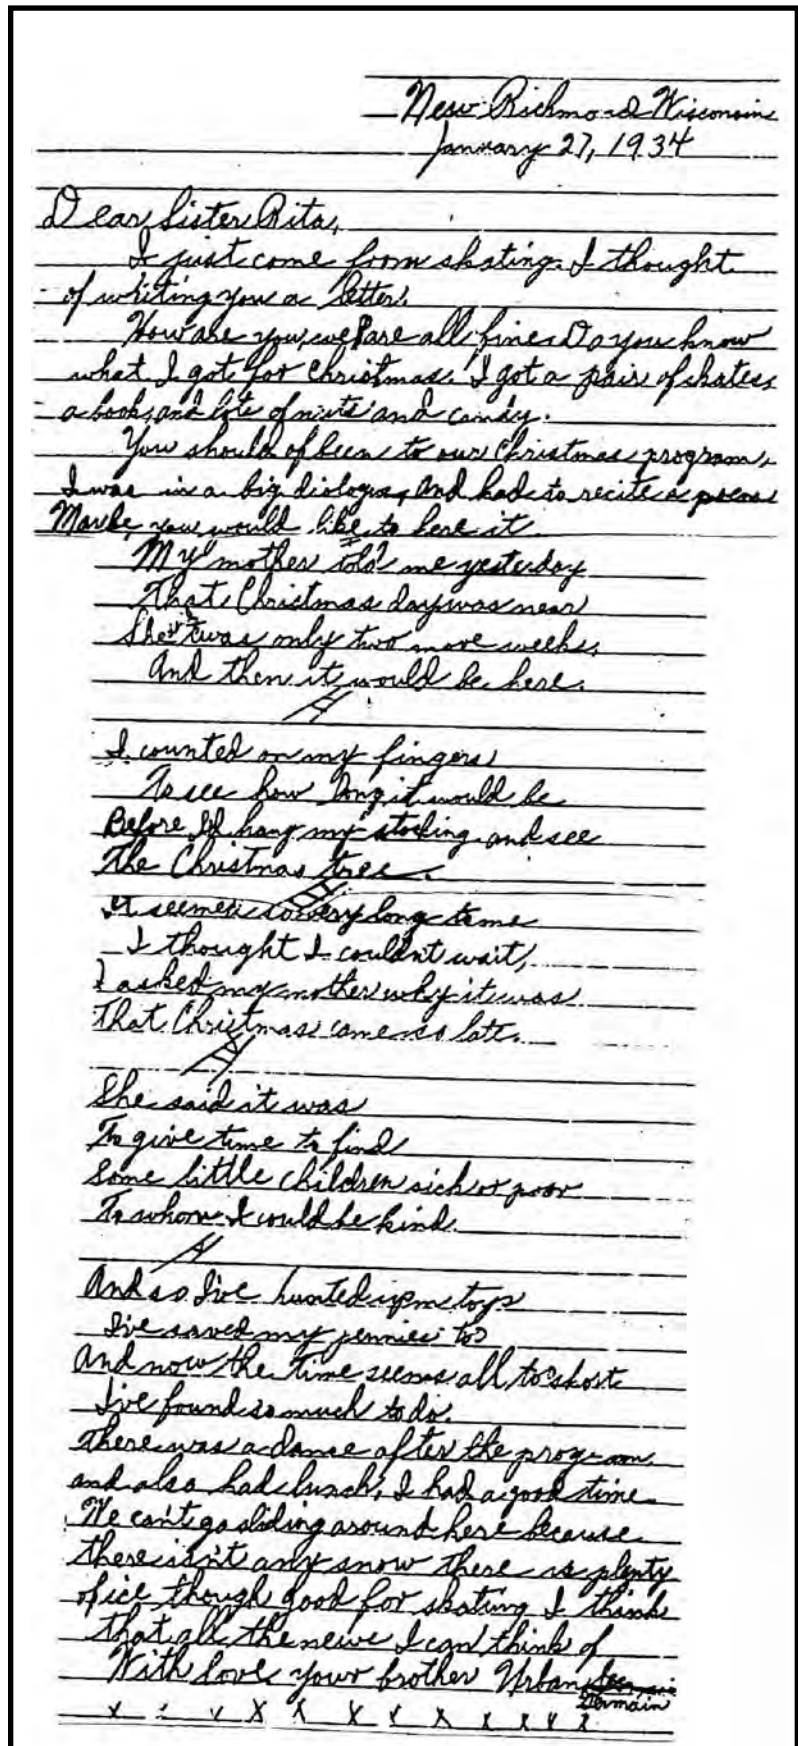 New Richmond Wisconsin
January 27, 1934
Dear Sister Rita,
I just come from skating. I thought
of writing you a letter.
How are you, we are all fine. Do you know
what I got for Christmas. I got a pair of skates,
a book, and lots of nuts and candy.
You should of been to our Christmas program,
I was in a big diologue, and had to recite a poem
Maybe you would like to here it
My mother told me yesterday
That Christmas day was near
She it was only two more weeks,
And then it would be here.
I counted on my fingers
To see how long it would be
Before I'd hang my stocking and see
The Christmas tree.
It seemed so very long time
I thought I couldn't wait,
I asked my mother why it was
That Christmas came so late.
She said it was
To give time to find
Some little children sick or poor
To whom I could be kind.
And so I've hunted up my toys
I've saved my pennies to
And now the time seems all to short
I've found so much to do.
There was a dance after the program,
and also had lunch, I had a good time.
We can't go sliding around here because
there isn't any snow there is plenty
of ice though good for skating I think
that all the news I can think of
With love your brother Urban
Germain
x x x x x x x x x x x x